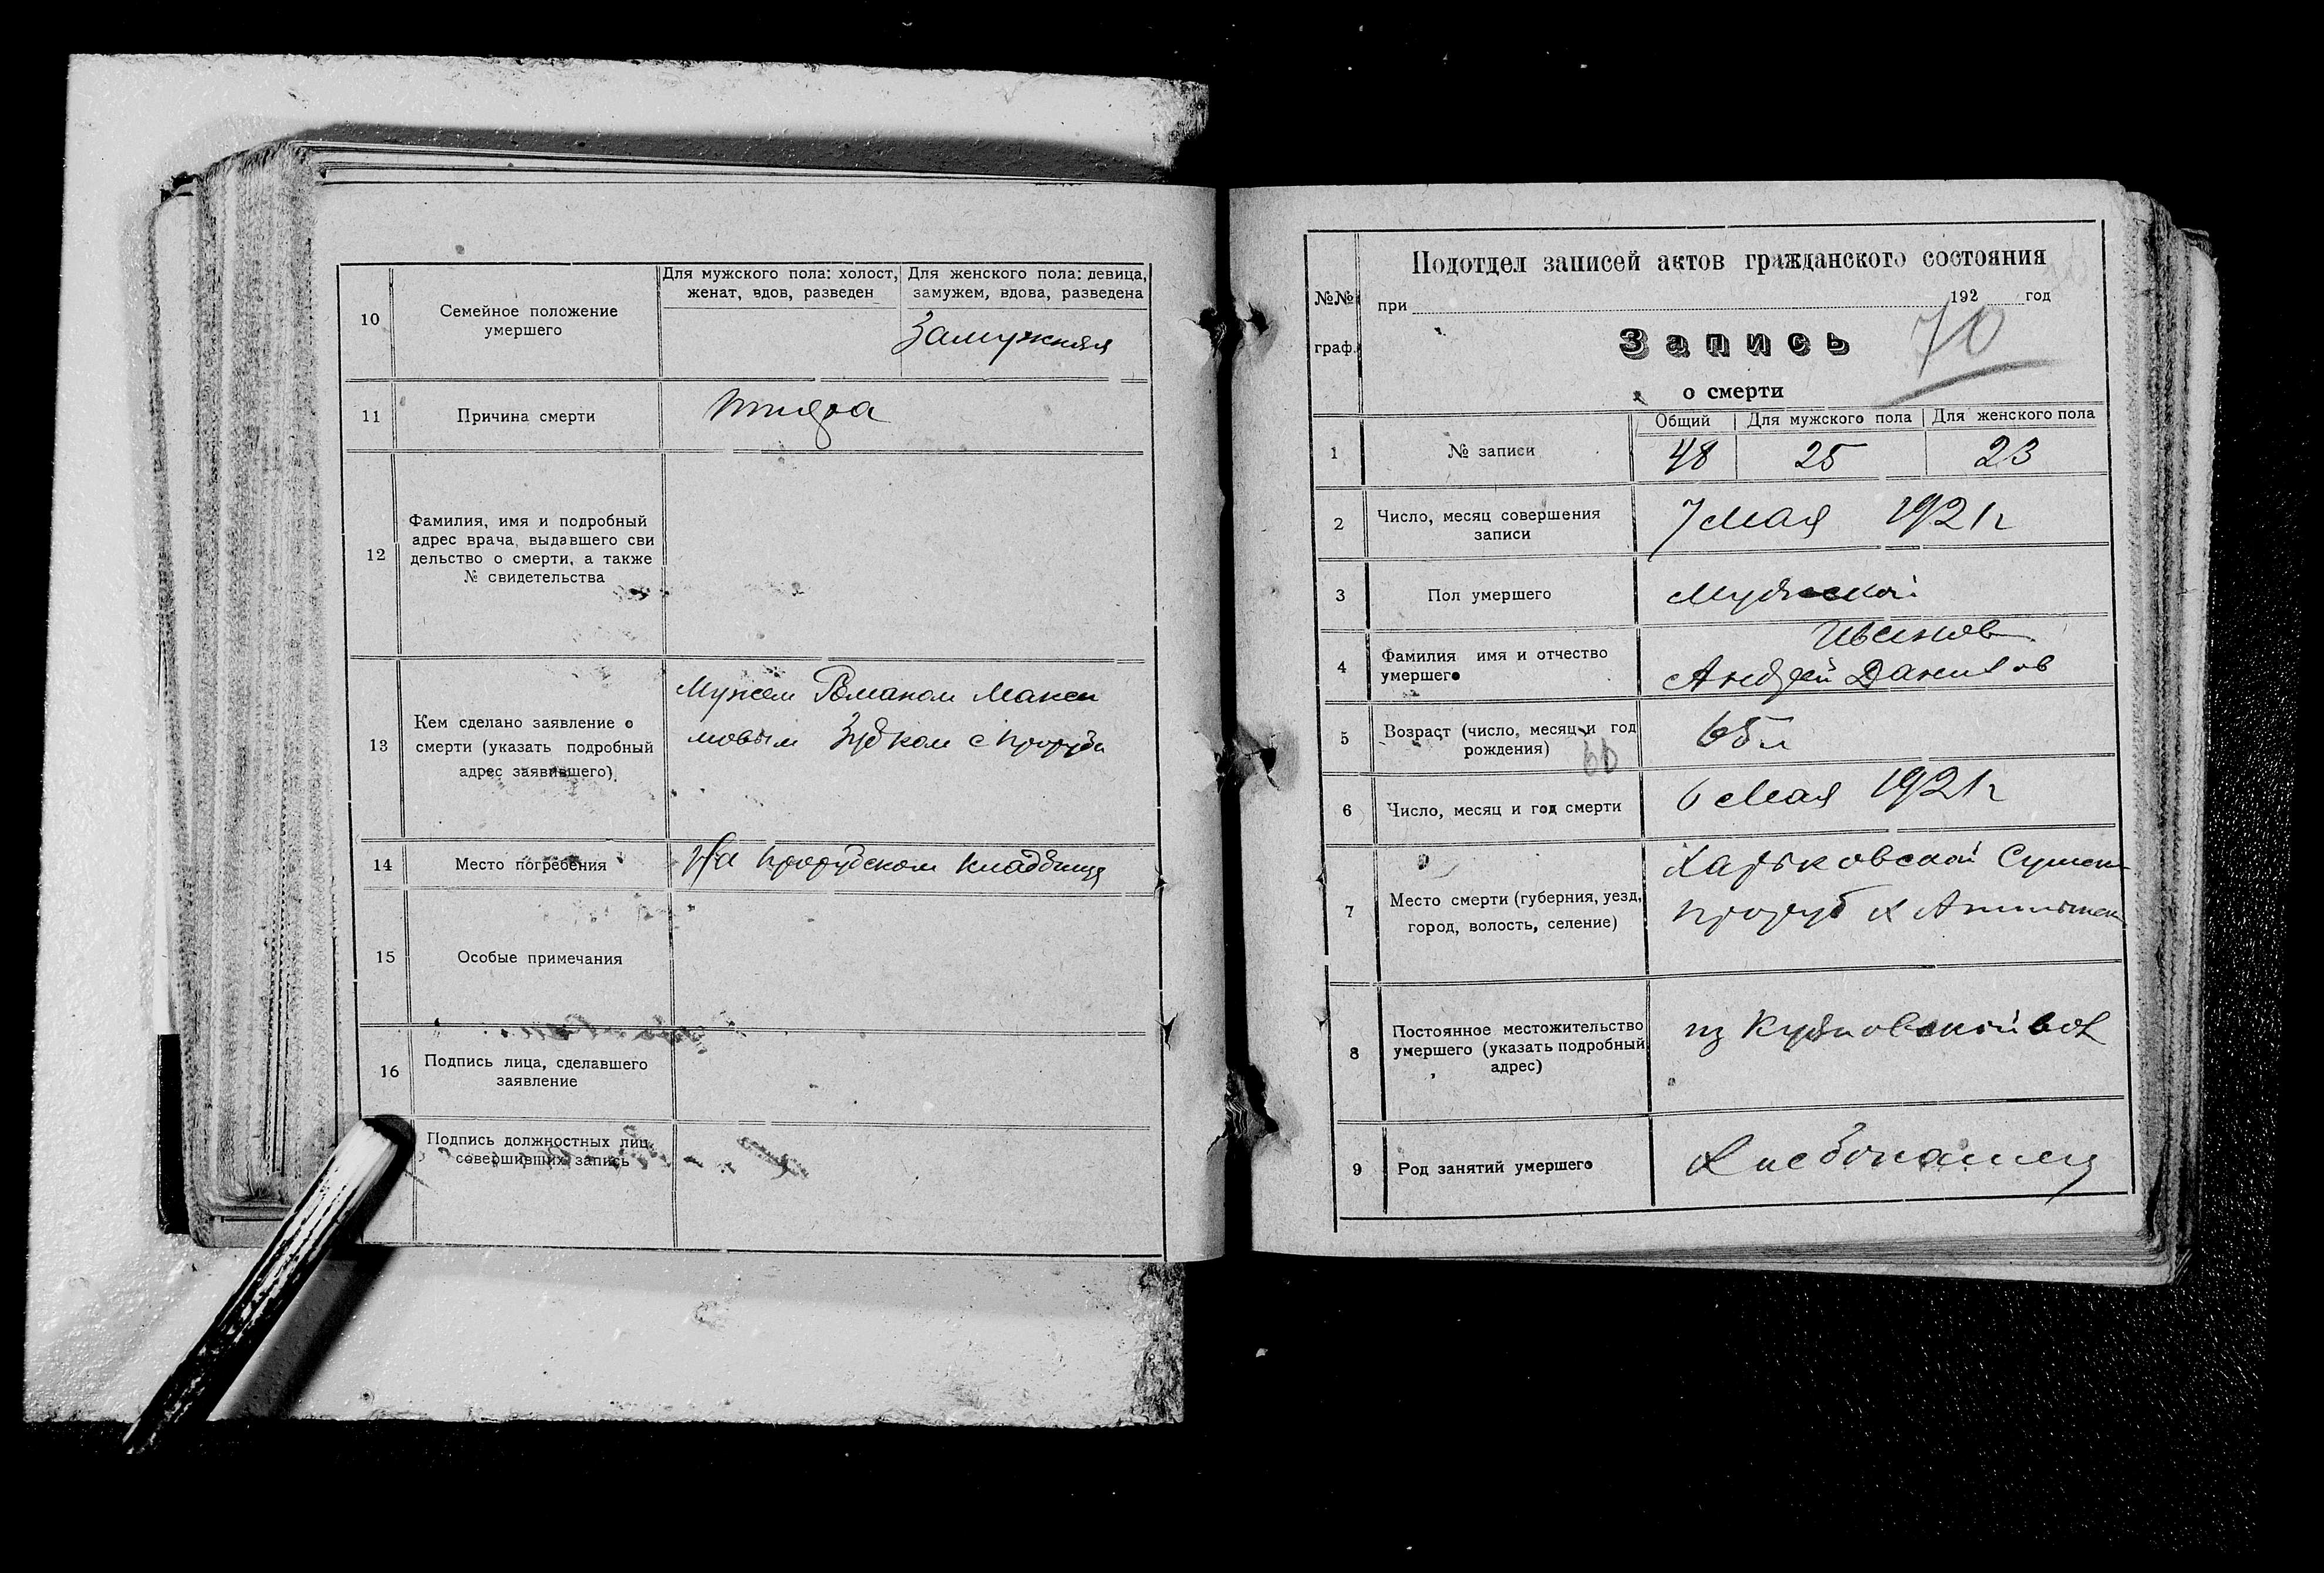 10
Семейное положение
умершего
Для мужского пола: холост,
женат, вдов, разведен
Для женского пола: девица,
замужем, вдова, разведена
Замужняя
11
Причина смерти
12
Фамилия, имя и подробный
адрес врача, выдавшего сви
дельство о смерти, а также
№ свидетельства
13
Кем сделано заявление о
смерти (указать подробный
адрес заявившего)
Мужем Романом Макси
мовым Зубком с Проруби
14
Место погребения
На прорубском кладбище
15
Особые примечания
16
Подпись лица, сделавшего
заявление
Подпись должностных лиц,
совершивших запись
№№
граф.
Подотдел записей актов гражданского состояния
при 192 год
Запись
70
о смерти
1
№ записи
Общий
Для мужского пола
Для женского пола
48
25
23
2
Число, месяц совершения
записи
7 Мая 1921 г
3
Пол умершего
Мужской
4
Фамилия имя и отчество
умершего
Иванов
Андрей Данилов
5
Возраст (число, месяц и год
рождения)
65 л
6
Число, месяц и год смерти
6 Мая 1921 г
7
Место смерти (губерния, уезд,
город, волость, селение)
Харьковской Сумск
Проруб х
8
Постоянное местожительство
умершего (указать подробный
адрес)
из вол
9
Род занятий умершего
Хлебопашец